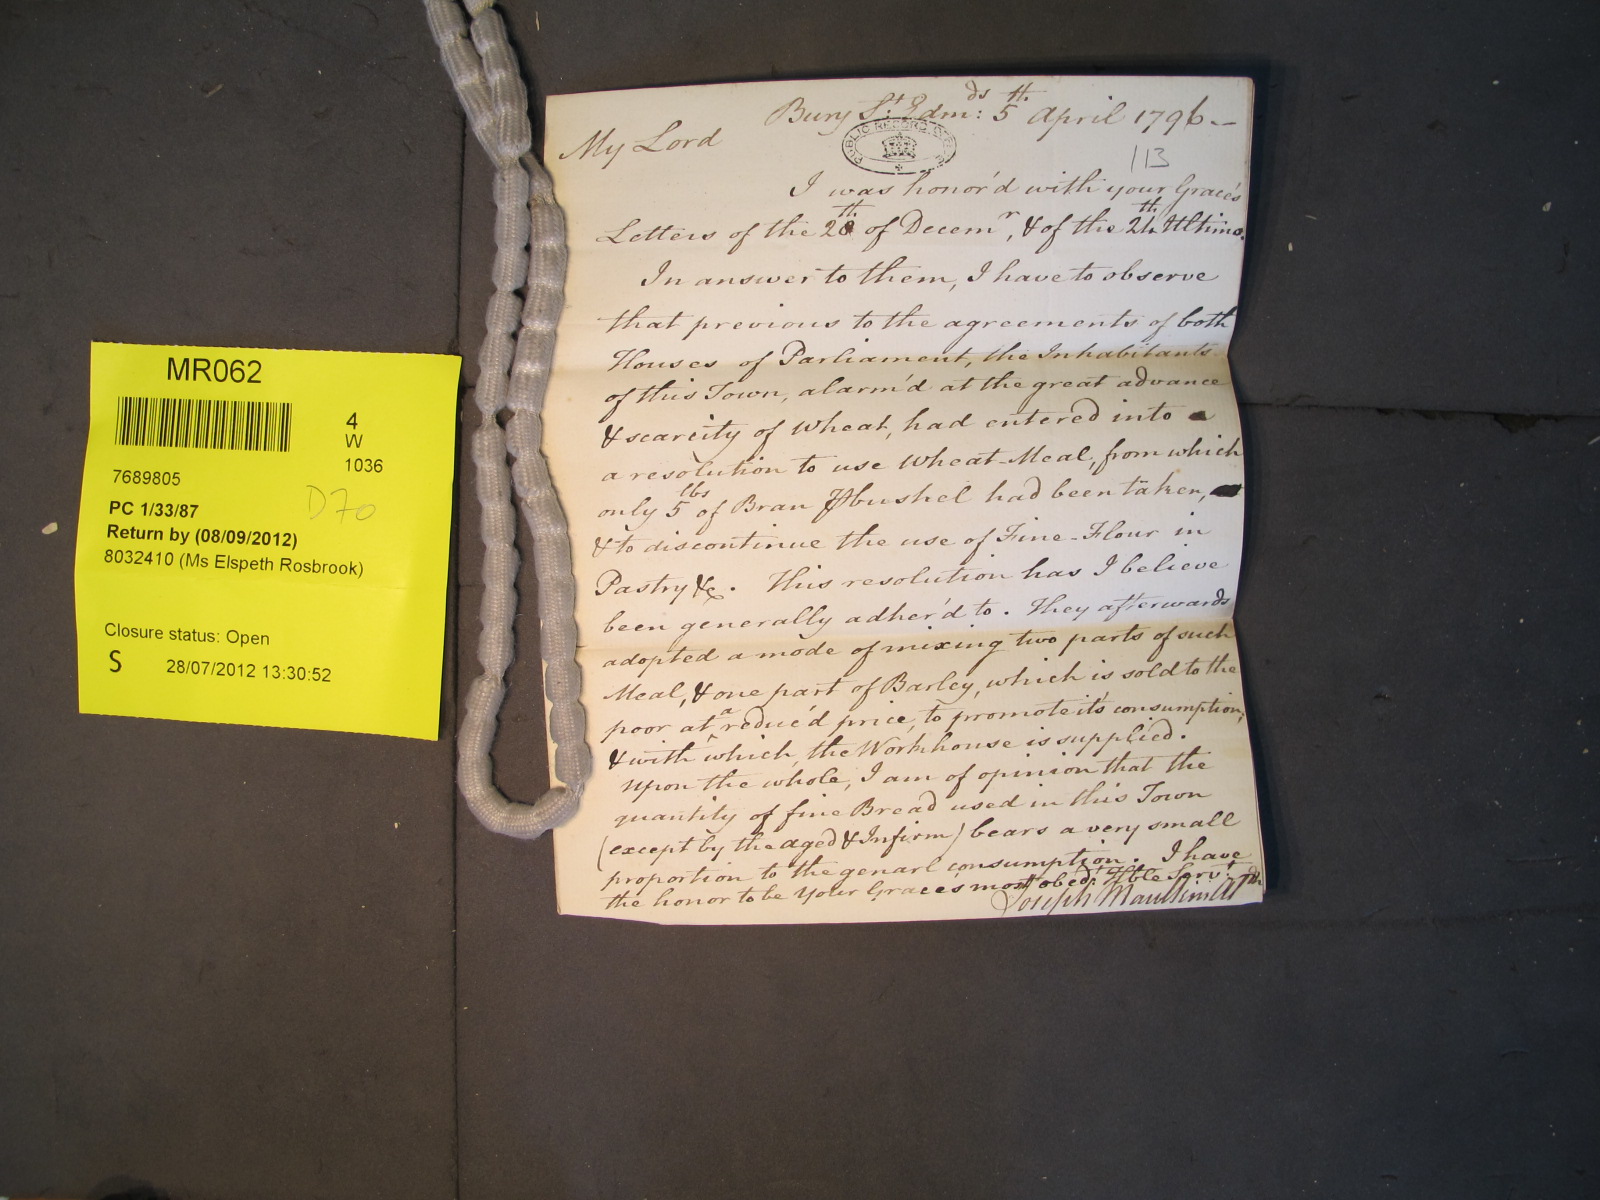 MR062
4
W
1036
7689805
D70
PC 1/33/87
Return by (08/09/2012)
8032410 (Ms Elspeth Rosbrook)
Closure status: Open
S 28/07/2012 13:30:52
Bury St Edmds: 5th April 1796 —
PUBLIC RECORD OFFICE
My Lord
113
I was honor'd with your Grace's
Letters of the 28th of Decemr, & of the 24th Ultimo.
In answer to them, I have to observe
that previous to the agreements of both
Houses of Parliament, the Inhabitants
of this Town, alarm'd at the great advance
& scarcity of Wheat, had entered into
a resolution to use Wheat-Meal, from which
only 5 lbs of Bran ⅌ bushel had been taken,
& to discontinue the use of Fine-Flour in
Pastry &c. This resolution has I believe
been generally adher'd to. They afterwards
adopted a mode of mixing two parts of such
Meal, & one part of Barley, which is sold to the
poor at a reduc'd price, to promote it's consumption,
& with which, the Workhouse is supplied.
Upon the whole, I am of opinion that the
quantity of fine Bread used in this Town
(except by the aged & Infirm) bears a very small
proportion to the genarl consumption. I have
the honor to be Your Grace's most obedt. Hble Servt.
Joseph